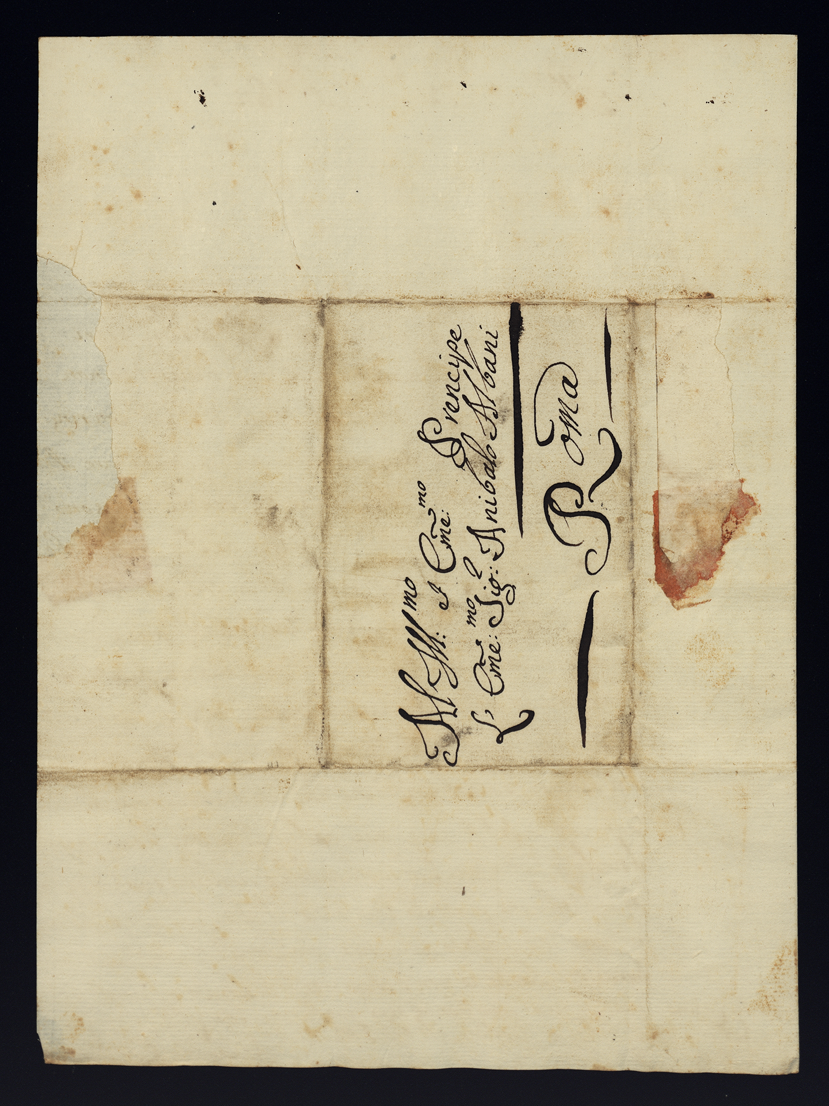 All Ill:mo I Eme:mo Prencipe
L' Eme:mo Sig:e Anibalo Albani
Roma